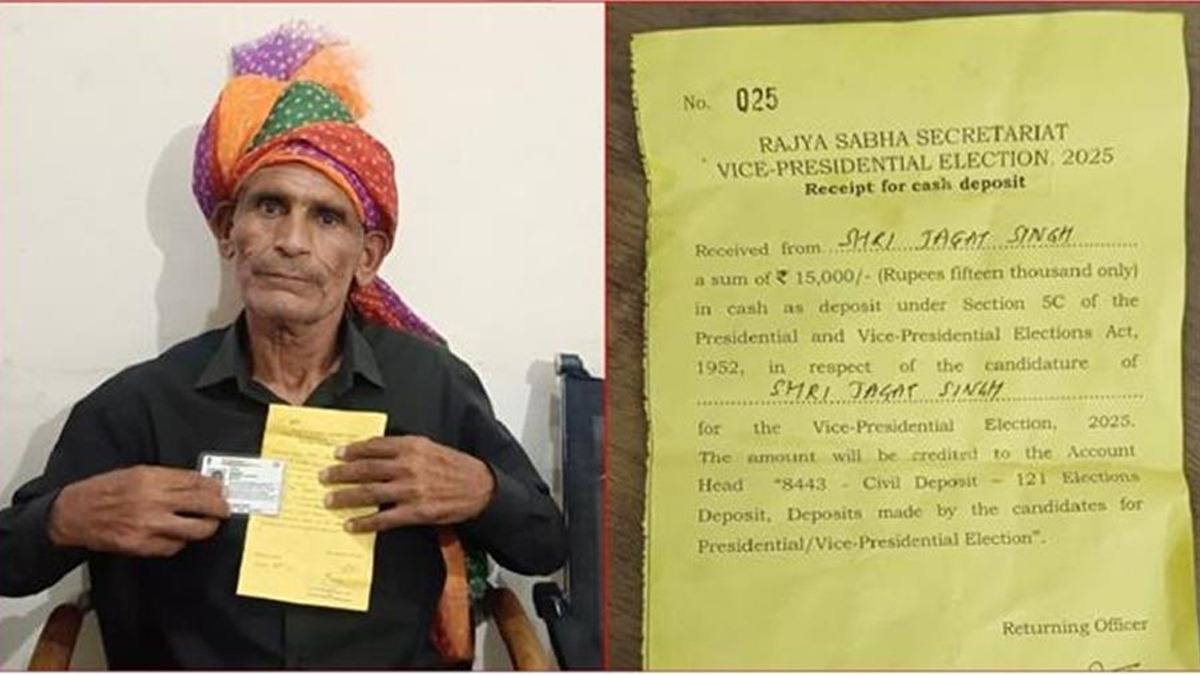 No. 025
RAJYA SABHA SECRETARIAT
VICE-PRESIDENTIAL ELECTION, 2025
Receipt for cash deposit
Received from SHRI JAGAT SINGH
a sum of ₹ 15,000/- (Rupees fifteen thousand only)
in cash as deposit under Section 5C of the
Presidential and Vice-Presidential Elections Act,
1952, in respect of the candidature of
SHRI JAGAT SINGH
for the Vice-Presidential Election, 2025.
The amount will be credited to the Account
Head "8443 - Civil Deposit – 121 Elections
Deposit, Deposits made by the candidates for
Presidential/Vice-Presidential Election".
Returning Officer